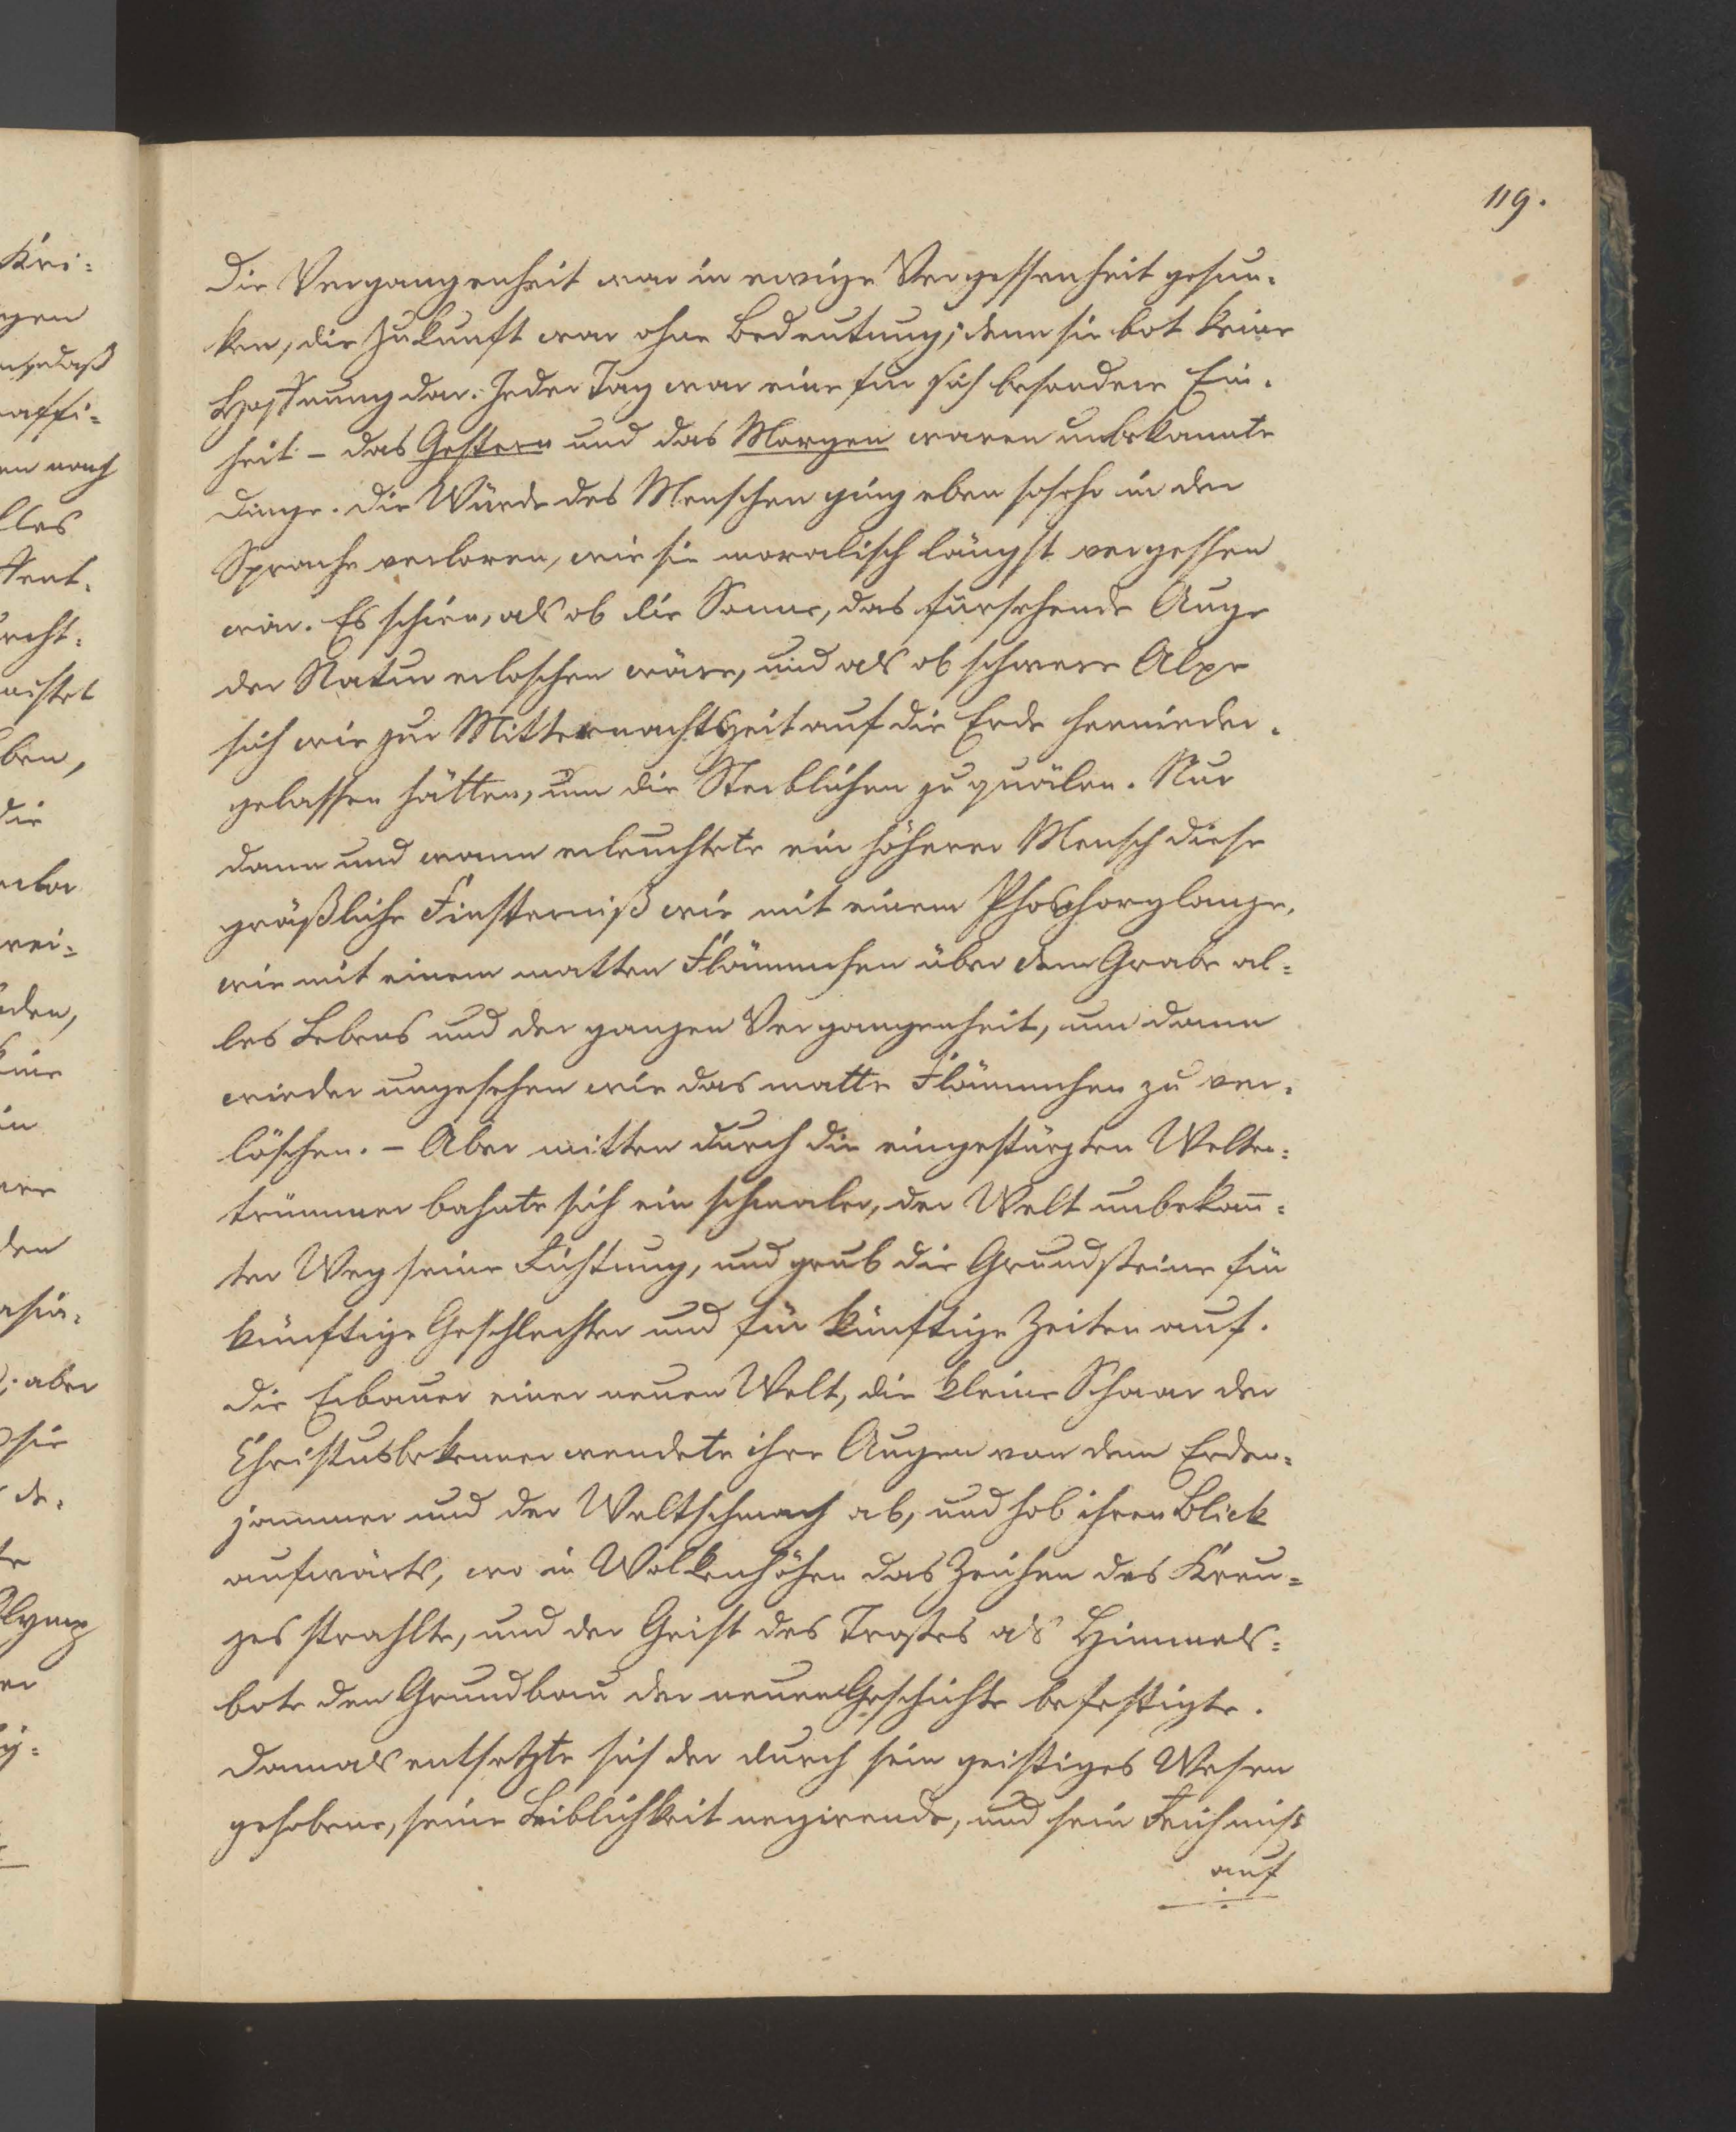 119.
Die Vergangenheit war in ewige Vergessenheit gesun-
ken, die Zukunft war ohne Bedeutung; denn sie bot keine
Hoffnung dar. Jeder Tag war eine für sich besondere Ein-
heit – das Gestern und das Morgen waren unbekannte
Dinge. Die Würde des Menschen ging eben sosehr in der
Sprache verloren, wie sie moralisch längst vergessen
war. Es schien, als ob die Sonne, das fürsehende Auge
der Natur erloschen wäre, und als ob schwere Alpe
sich wie zur Mitternachtszeit auf die Erde hernieder-
gelassen hätten, um die Sterblichen zu quälen. Nur
dann und wann erleuchtete ein höherer Mensch diese
gräßliche Finsterniß wie mit einem Phosphorglanze,
wie mit einem matten Flämmchen über dem Grabe al=
les Lebens und der ganzen Vergangenheit, um dann
wieder ungesehen wie das matte Flämmchen zu ver-
löschen. – Aber mitten durch die eingestürzten Welten=
trümmer bahnte sich ein schmaler, der Welt unbekan̄=
ter Weg seine Richtung, und grub die Grundsteine für
künftige Geschlechter und für künftige Zeiten auf.
Die Erbauer einer neuen Welt, die kleine Schaar der
Christusbekenner wendete ihre Augen von dem Erden=
jammer und der Weltschmach ab, und hob ihren Blick
aufwärts, wo in Wolkenhöhen das Zeichen des Kreu=
zes strahlte, und der Geist des Trostes als Himmels=
bote den Grundbau der neuen Geschichte befestigte.
Damals entsetzte sich der durch sein geistiges Wesen
gehobene, seine Leiblichkeit negirende, und sein
auf